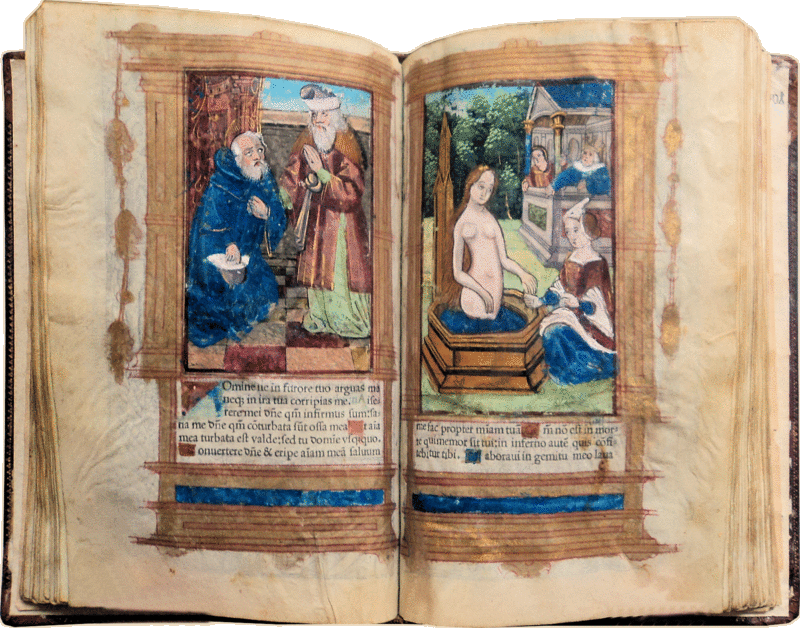 Omine ne in furore tuo arguas me
neq; in ira tua corripias me. Mise
rere mei dñe qm̃ infirmus sum: sa
na me dñe qm̃ cõturbata sũt ossa mea
mea turbata est valde: sed tu domie vsququo.
onuertere dñe & eripe aĩam meã saluum
me fac propter miam tuã. m̃ nõ est in mor
te qui memor sit tui: in inferno autẽ quis cõfi
tebitur tibi. aboraui in gemitu meo laua